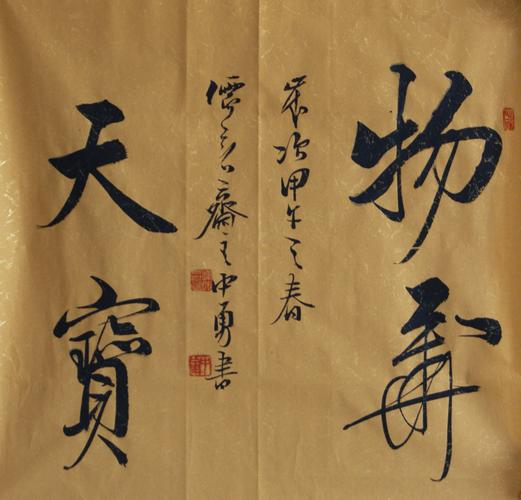 物華
歲次甲午之春
齋主中勇書
天寶